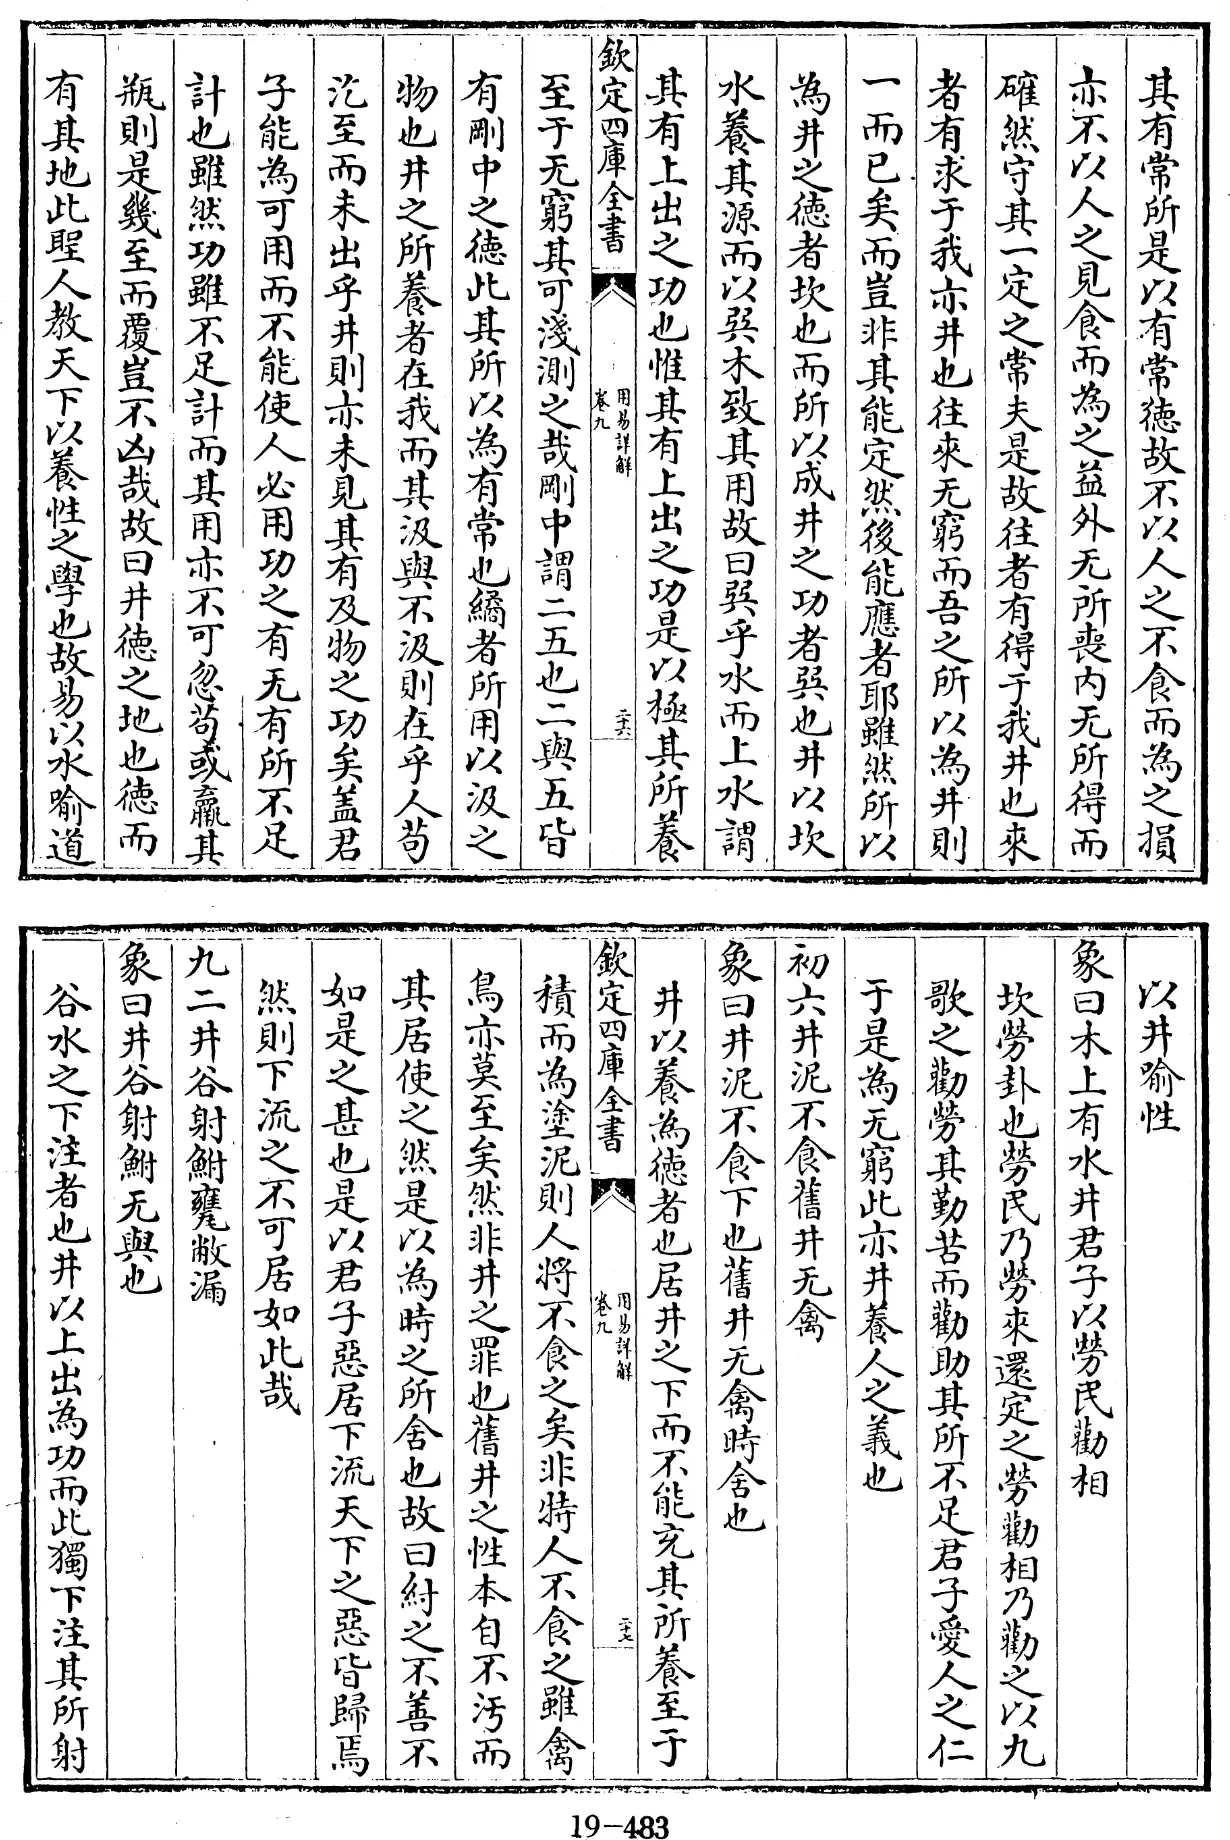 其有常所是以有常徳故不以人之不食而為之損
亦不以人之見食而為之益外无所喪内无所得而
確然守其一定之常夫是故往者有得于我井也來
者有求于我亦井也往來无窮而吾之所以為井則
一而已矣而豈非其能定然後能應者耶雖然所以
為井之徳者坎也而所以成井之功者巽也井以坎
水養其源而以巽木致其用故曰巽乎水而上水謂
其有上出之功也惟其有上出之功是以極其所養
欽定四庫全書
用易詳解
卷九
二十六
至于无窮其可淺測之哉剛中謂二五也二與五皆
有剛中之徳此其所以為有常也繘者所用以汲之
物也井之所養者在我而其汲與不汲則在乎人茍
汔至而未出乎井則亦未見其有及物之功矣盖君
子能為可用而不能使人必用功之有无有所不足
計也雖然功雖不足計而其用亦不可忽茍或羸其
瓶則是幾至而覆豈不凶哉故曰井徳之地也徳而
有其地此聖人教天下以養性之學也故易以水喻道
以井喻性
象曰木上有水井君子以勞民勸相
坎勞卦也勞民乃勞來還定之勞勸相乃勸之以九
歌之勸勞其勤苦而勸助其所不足君子愛人之仁
于是為无窮此亦井養人之義也
初六井泥不食舊井无禽
象曰井泥不食下也舊井无禽時舍也
井以養為徳者也居井之下而不能充其所養至于
欽定四庫全書
用易詳解
卷九
二十七
積而為塗泥則人將不食之矣非特人不食之雖禽
鳥亦莫至矣然非井之罪也舊井之性本自不汚而
其居使之然是以為時之所舍也故曰紂之不善不
如是之甚也是以君子惡居下流天下之惡皆歸焉
然則下流之不可居如此哉
九二井谷射鮒甕敝漏
象曰井谷射鮒无與也
谷水之下注者也井以上出為功而此獨下注其所射
19-483